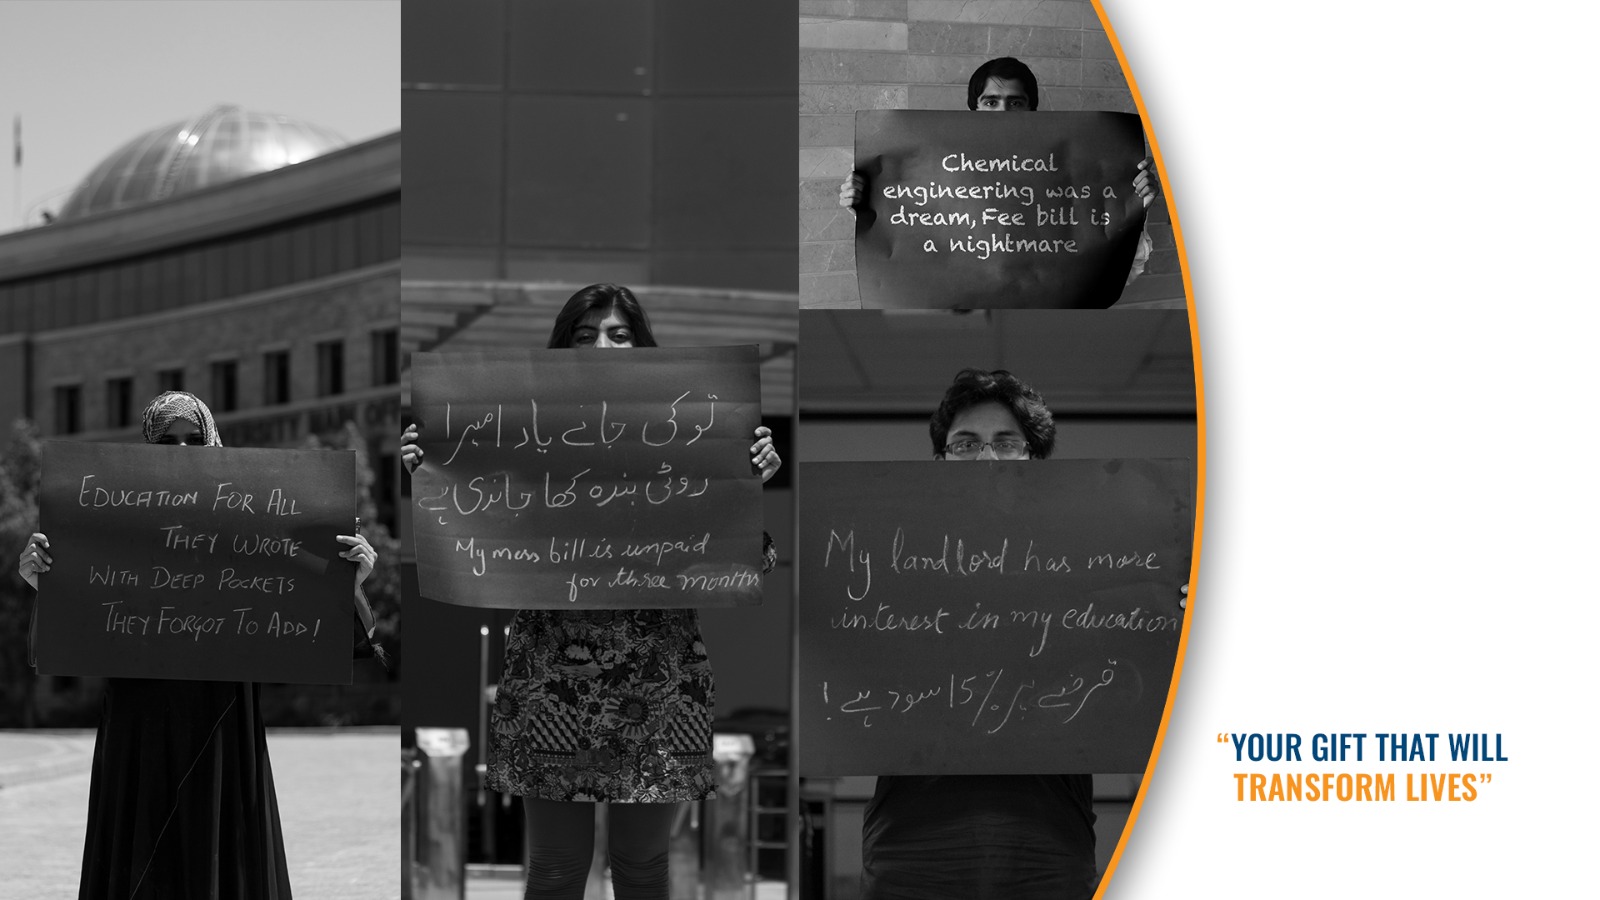 EDUCATION FOR ALL
THEY WROTE
WITH DEEP POCKETS
THEY FORGOT TO ADD!
تو کی جانے یار امیرا
روٹی بندہ کھا جاندی ہے
My mess bill is unpaid
for three months
Chemical
engineering was a
dream, Fee bill is
a nightmare
My landlord has more
interest in my education
قرضے پر 15% سود ہے!
“YOUR GIFT THAT WILL
TRANSFORM LIVES”